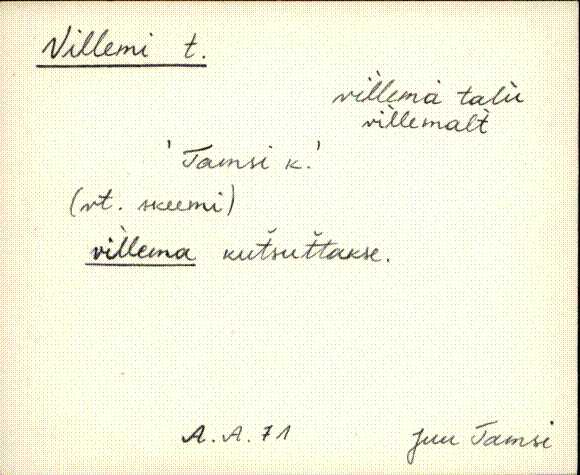 Villemi t.
villemà talù
vìllemalt
'Tamsi k.'
(vt. skeemi)
vìllema kutšuttakse.
A. A. 71
Juu Tamsi